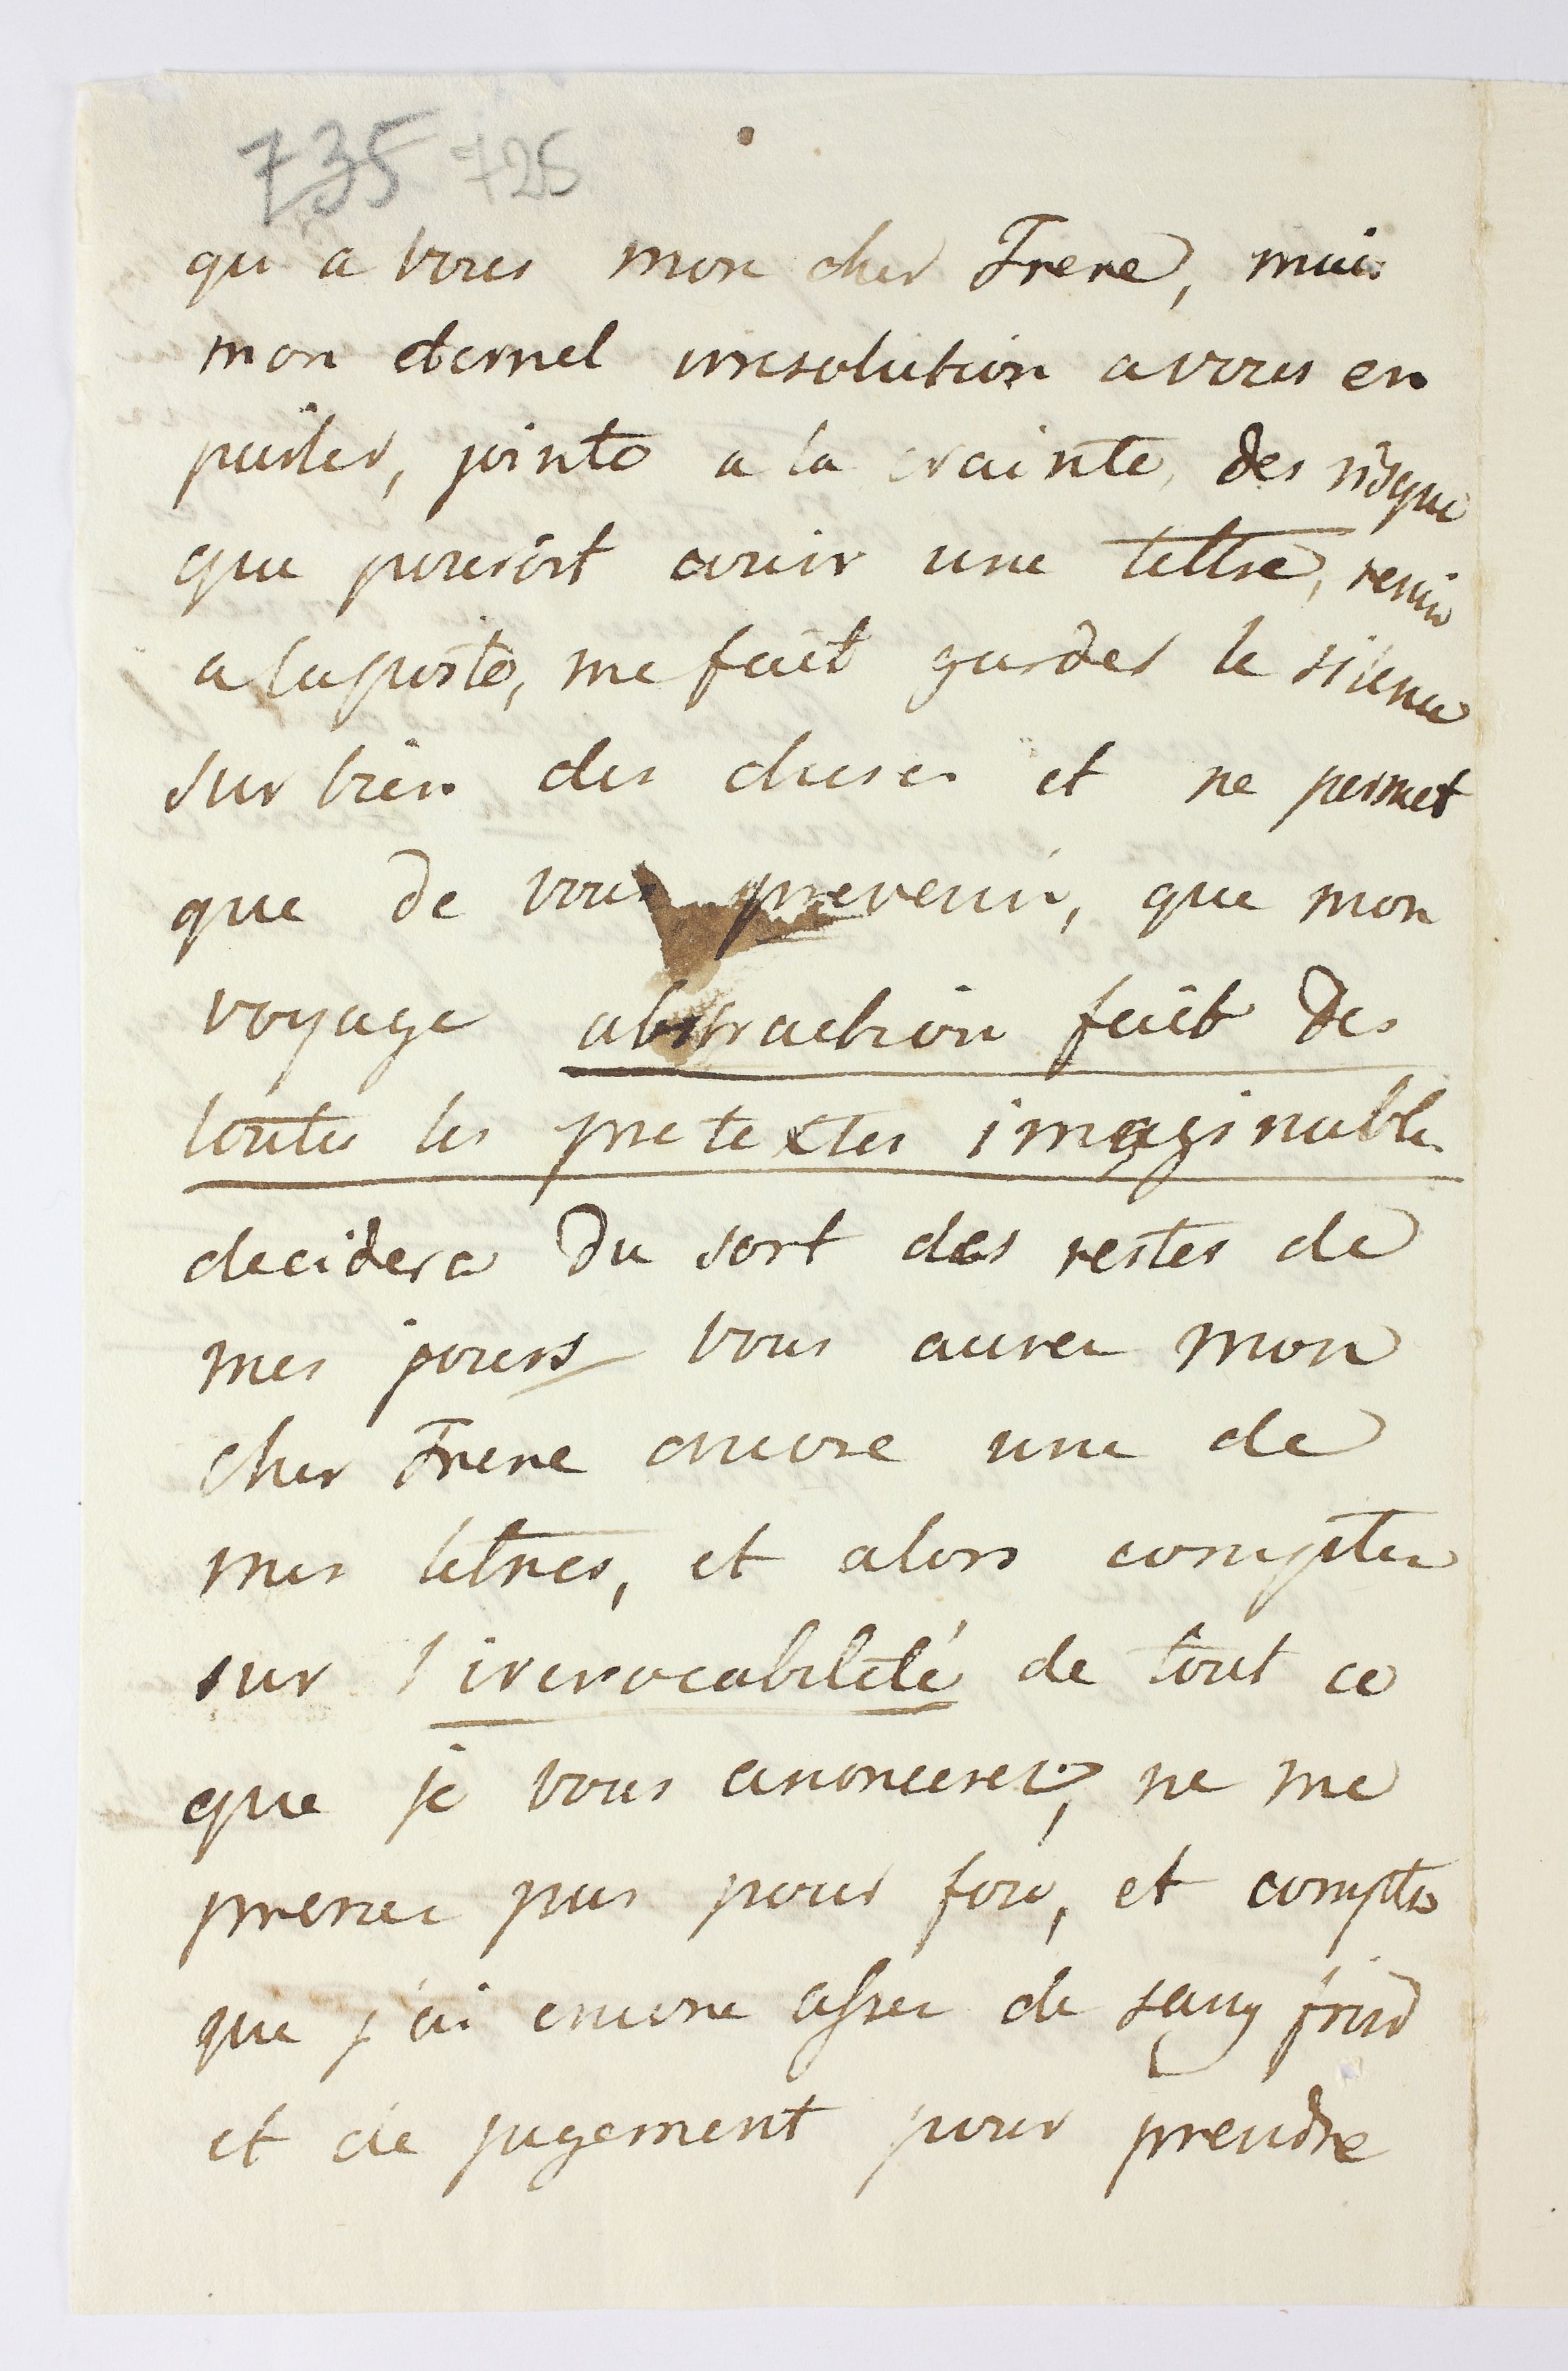 735 725
qu a vous mon cher Frere, mais
mon eternel irresolution a vous en
parler, jointe a la crainte, des risque
que pouroit avoir une lettre, remis
a la poste, me fait garder le silence
sur bien des choses et ne permet
que de vous prevenir, que mon
voyage abstraction fait des
toutes les pretextes imaginable
decidera du sort des restes de
mes jours vous aurez mon
cher Frere encore une de
mes lettres, et alors comptez
sur l'irevocabileté de tout ce
que je vous anoncerei, ne me
prenez pas pour fou, et comptez
que j'ai encore assez de sang froid
et de jugement pour prendre